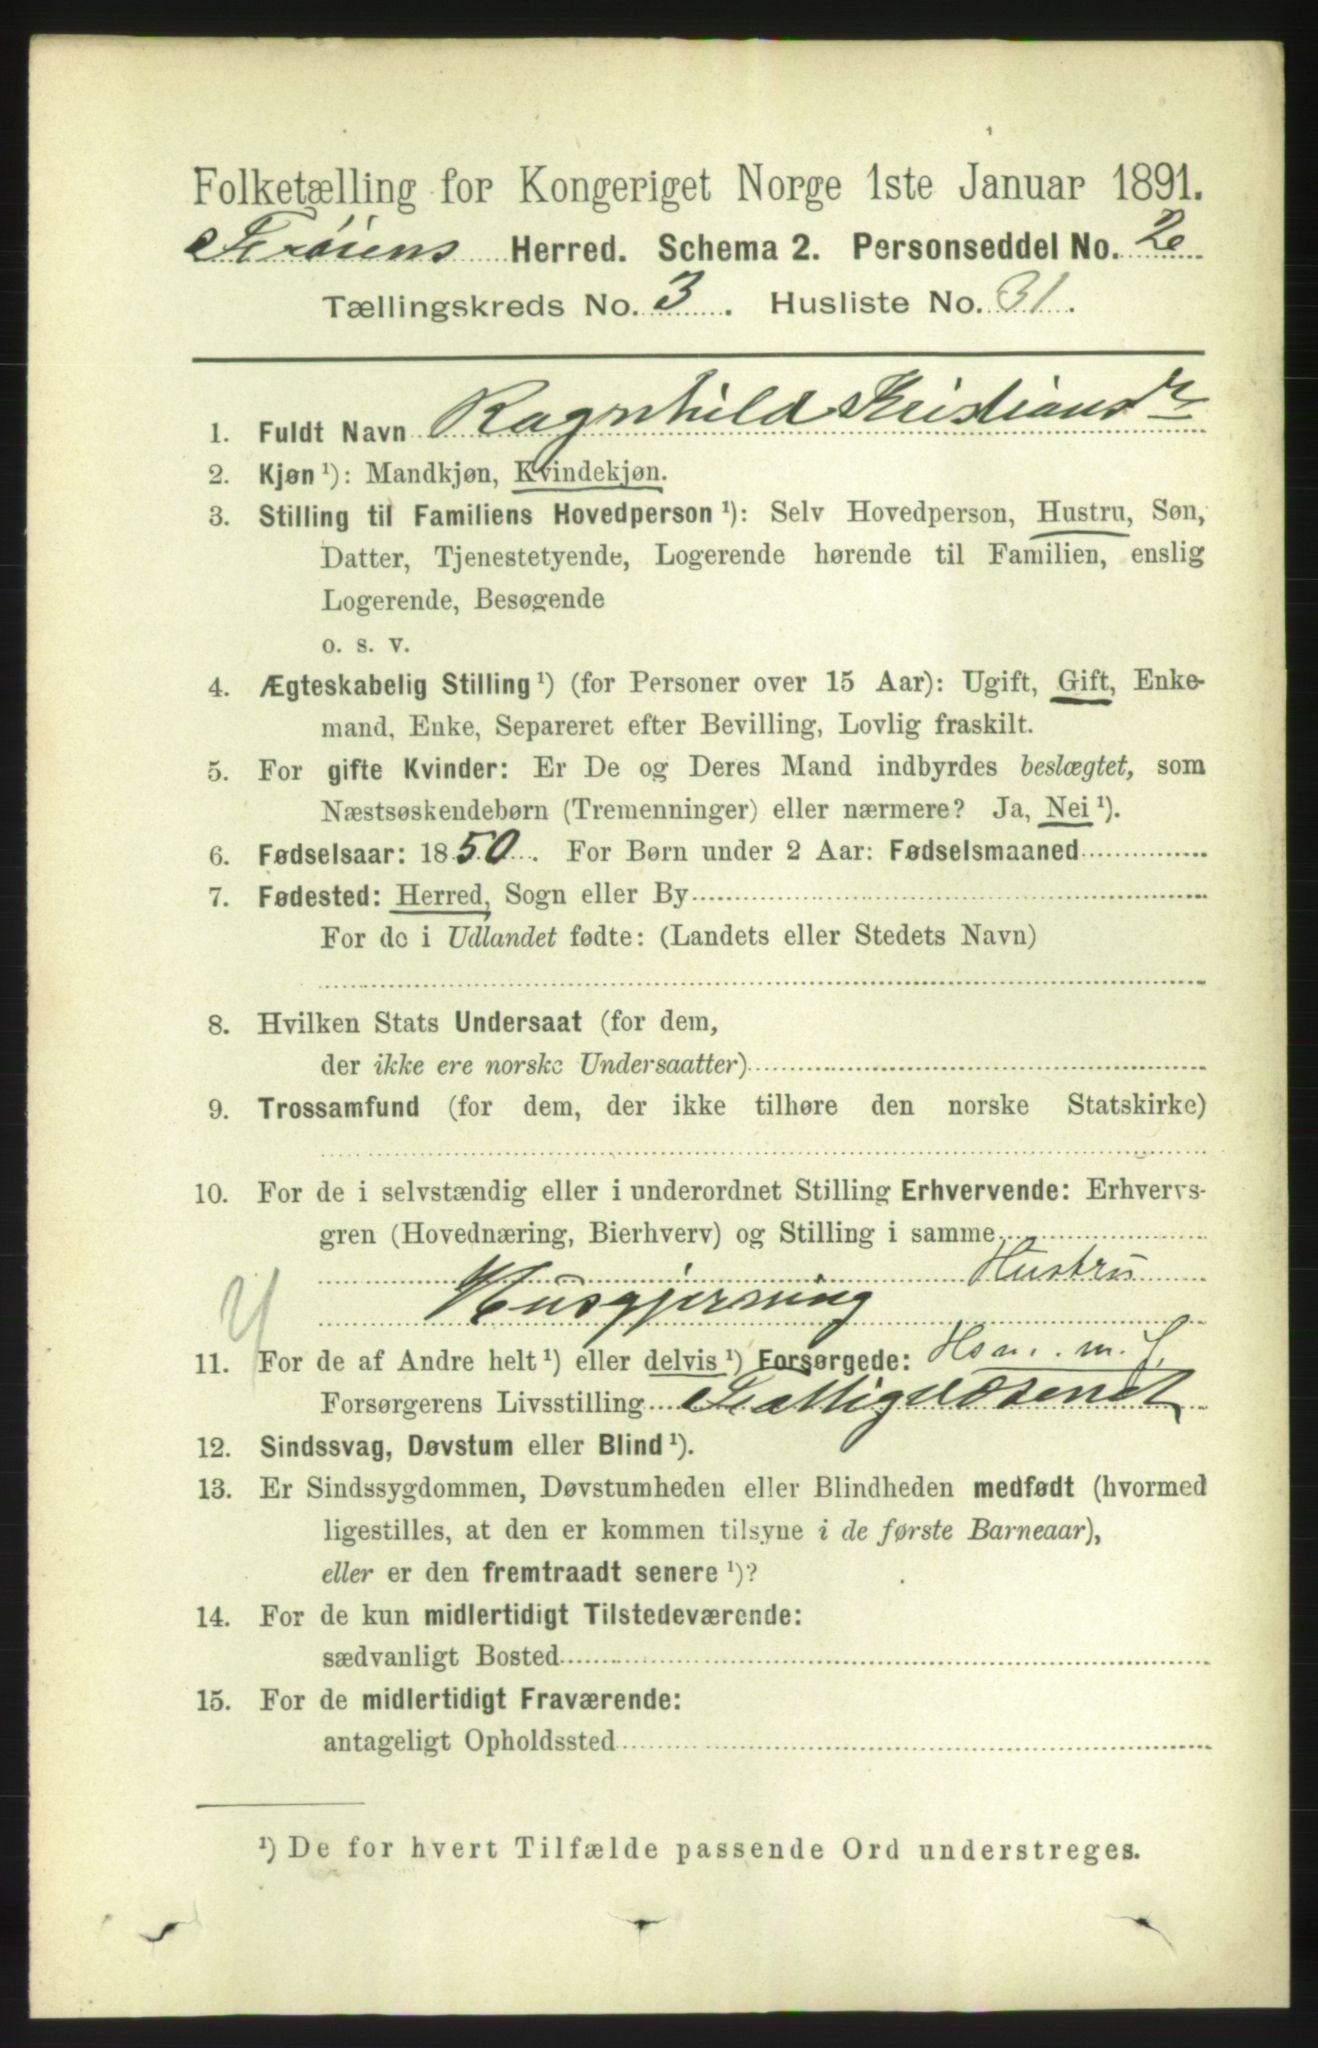 Folketælling for Kongeriget Norge 1ste Januar 1891.
Frøiens Herred. Schema 2. Personseddel No. 2
Tællingskreds No. 3. Husliste No. 31.
1. Fuldt Navn Ragnhild Kristiansdr
2. Kjøn ¹): Mandkjøn, Kvindekjøn.
3. Stilling til Familiens Hovedperson ¹): Selv Hovedperson, Hustru, Søn,
Datter, Tjenestetyende, Logerende hørende til Familien, enslig
Logerende, Besøgende
o. s. v.
4. Ægteskabelig Stilling ¹) (for Personer over 15 Aar): Ugift, Gift, Enke-
mand, Enke, Separeret efter Bevilling, Lovlig fraskilt.
5. For gifte Kvinder: Er De og Deres Mand indbyrdes beslægtet, som
Næstsøskendebørn (Tremenninger) eller nærmere? Ja, Nei ¹).
6. Fødselsaar: 1850. For Børn under 2 Aar: Fødselsmaaned
7. Fødested: Herred, Sogn eller By
For de i Udlandet fødte: (Landets eller Stedets Navn)
8. Hvilken Stats Undersaat (for dem,
der ikke ere norske Undersaatter)
9. Trossamfund (for dem, der ikke tilhøre den norske Statskirke)
10. For de i selvstændig eller i underordnet Stilling Erhvervende: Erhvervs-
gren (Hovednæring, Bierhverv) og Stilling i samme
Hustru
Husgjerning
11. For de af Andre helt ¹) eller delvis ¹) Forsørgede: Hsm. m. J.
Forsørgerens Livsstilling Fattigvæsenet
12. Sindssvag, Døvstum eller Blind ¹).
13. Er Sindssygdommen, Døvstumheden eller Blindheden medfødt (hvormed
ligestilles, at den er kommen tilsyne i de første Barneaar),
eller er den fremtraadt senere ¹)?
14. For de kun midlertidigt Tilstedeværende:
sædvanligt Bosted
15. For de midlertidigt Fraværende:
antageligt Opholdssted
¹) De for hvert Tilfælde passende Ord understreges.